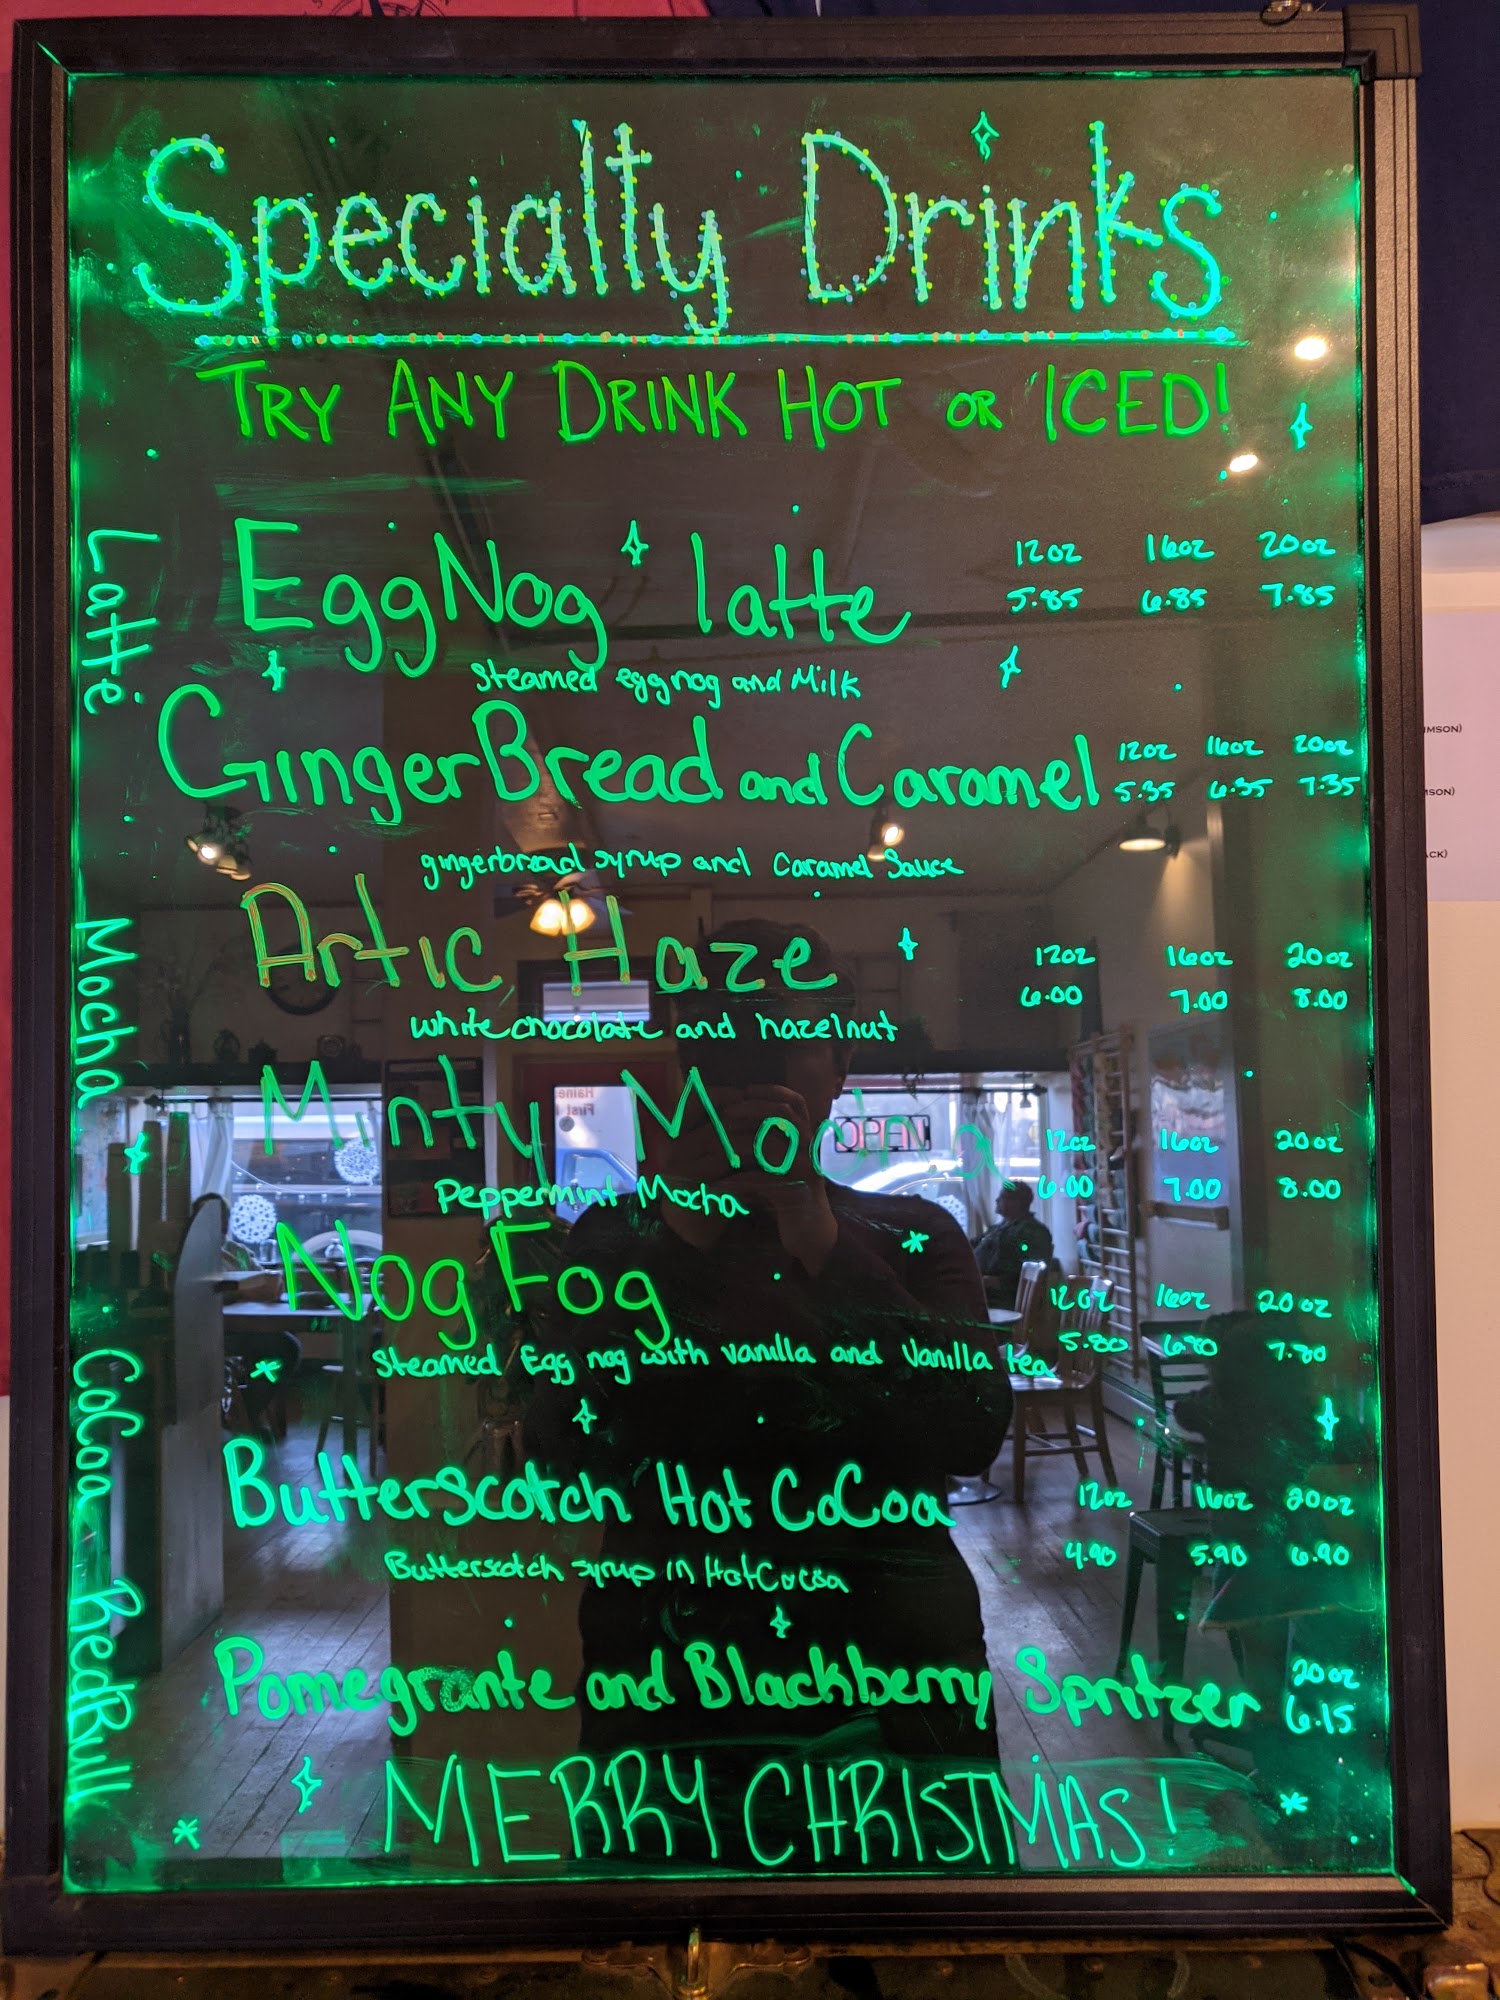 Specialty Drinks
TRY ANY DRINK HOT OR ICED!
EggNog latte
12oz 16oz 20oz
5.85 6.85 7.85
Steamed eggnog and Milk
GingerBread and Caramel
12oz 16oz 20oz
5.35 6.35 7.35
gingerbread syrup and Caramel Sauce
Artic Haze
12oz 16oz 20oz
6.00 7.00 8.00
white chocolate and hazelnut
Minty Mocha
12oz 16oz 20oz
6.00 7.00 8.00
Peppermint Mocha
Nog Fog
12oz 16oz 20oz
5.80 6.80 7.80
Steamed Egg nog with vanilla and Vanilla tea
Butterscotch Hot CoCoa
12oz 16oz 20oz
4.90 5.90 6.90
Butterscotch syrup in HotCocoa
Pomegrante and Blackberry Spritzer
20oz
6.15
MERRY CHRISTMAS!
Latte
Mocha
CoCoa
RedBull
OPEN
Haine
First
SON)